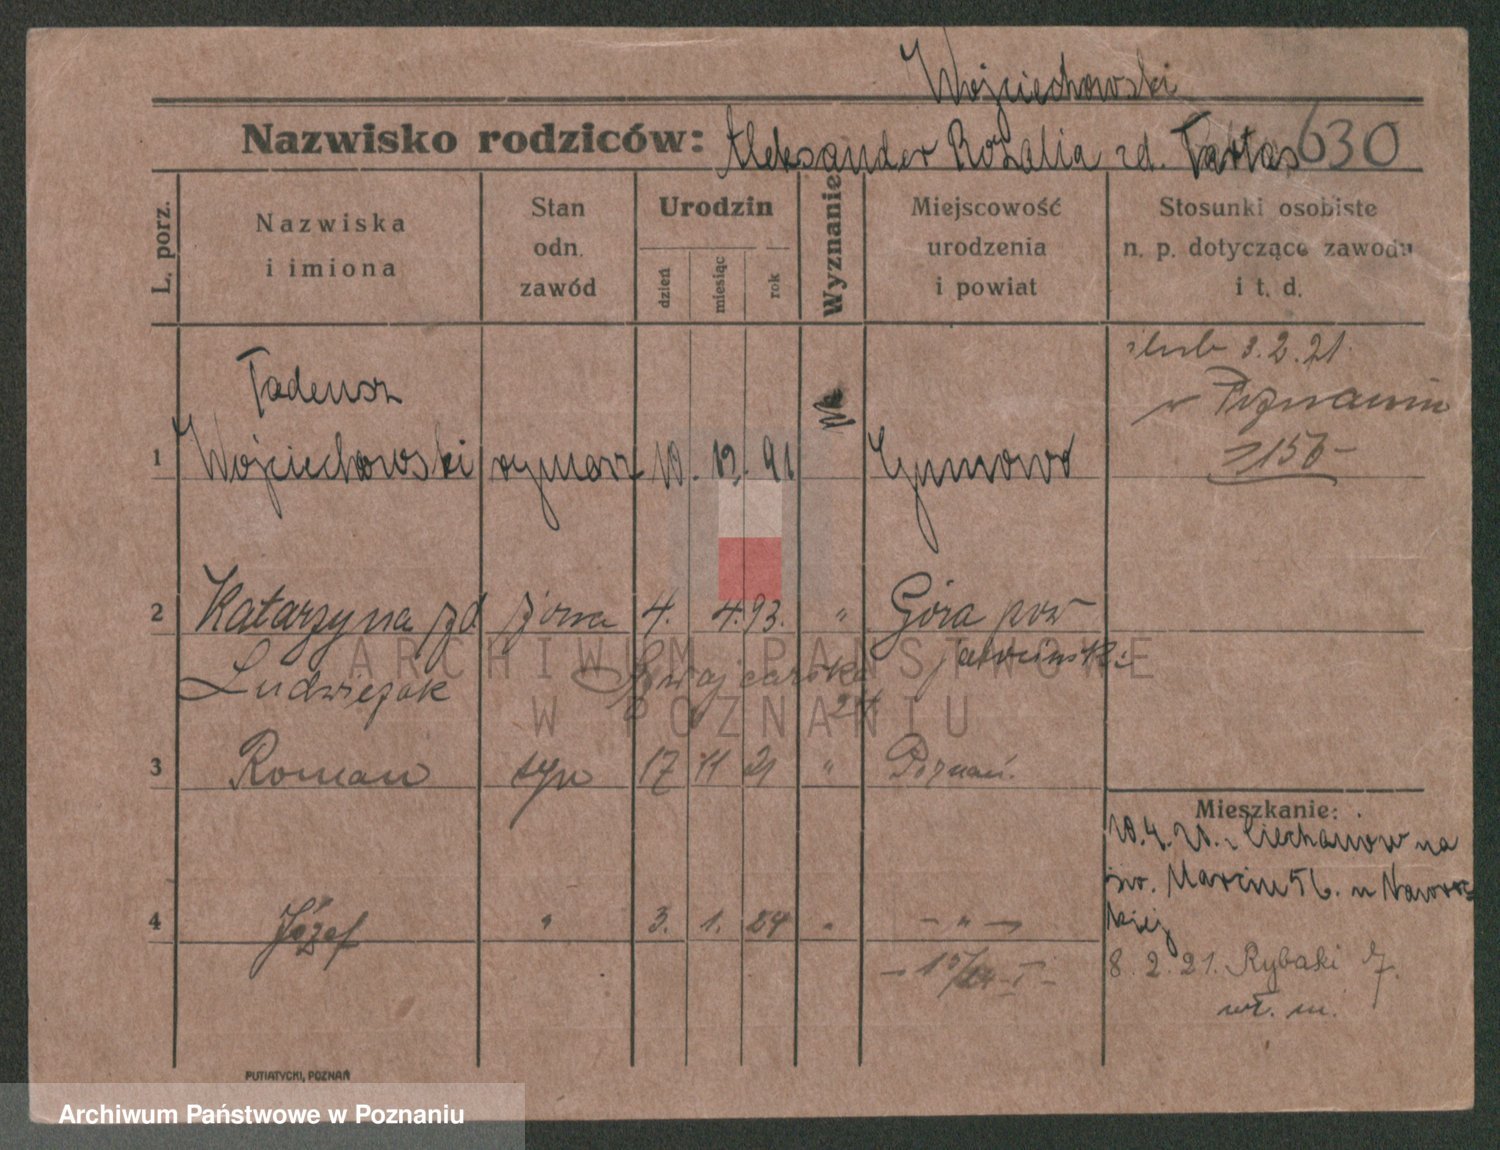 Wojciechowski
Nazwisko rodziców: Aleksander Rozalia zd. Tartas 630
L. porz.
Nazwiska i imiona
Stan odn. zawód
Urodzin
dzień
miesiąc
rok
Wyznanie
Miejscowość urodzenia i powiat
Stosunki osobiste n. p. dotyczące zawodu i t. d.
ślub 3.2.21.
w Poznaniu
Tadeusz
1 Wojciechowski rymarz 10. 12. 91
2 Katarzyna zd żona 4. 4. 93. " Góra pow
Ludwiczak jarocinski
Szwajcarska
3 Roman syn 17 11 21 " Poznań.
4 Józef " 3. 1. 24 " - " -
Mieszkanie:
10.4.20. z Ciechanow na
św. Marcin 56. u Nawroc-
kiej
8.2.21. Rybaki 7.
wł. m.
PUTIATYCKI, POZNAŃ
ARCHIWUM PAŃSTWOWE
W POZNANIU
Archiwum Państwowe w Poznaniu